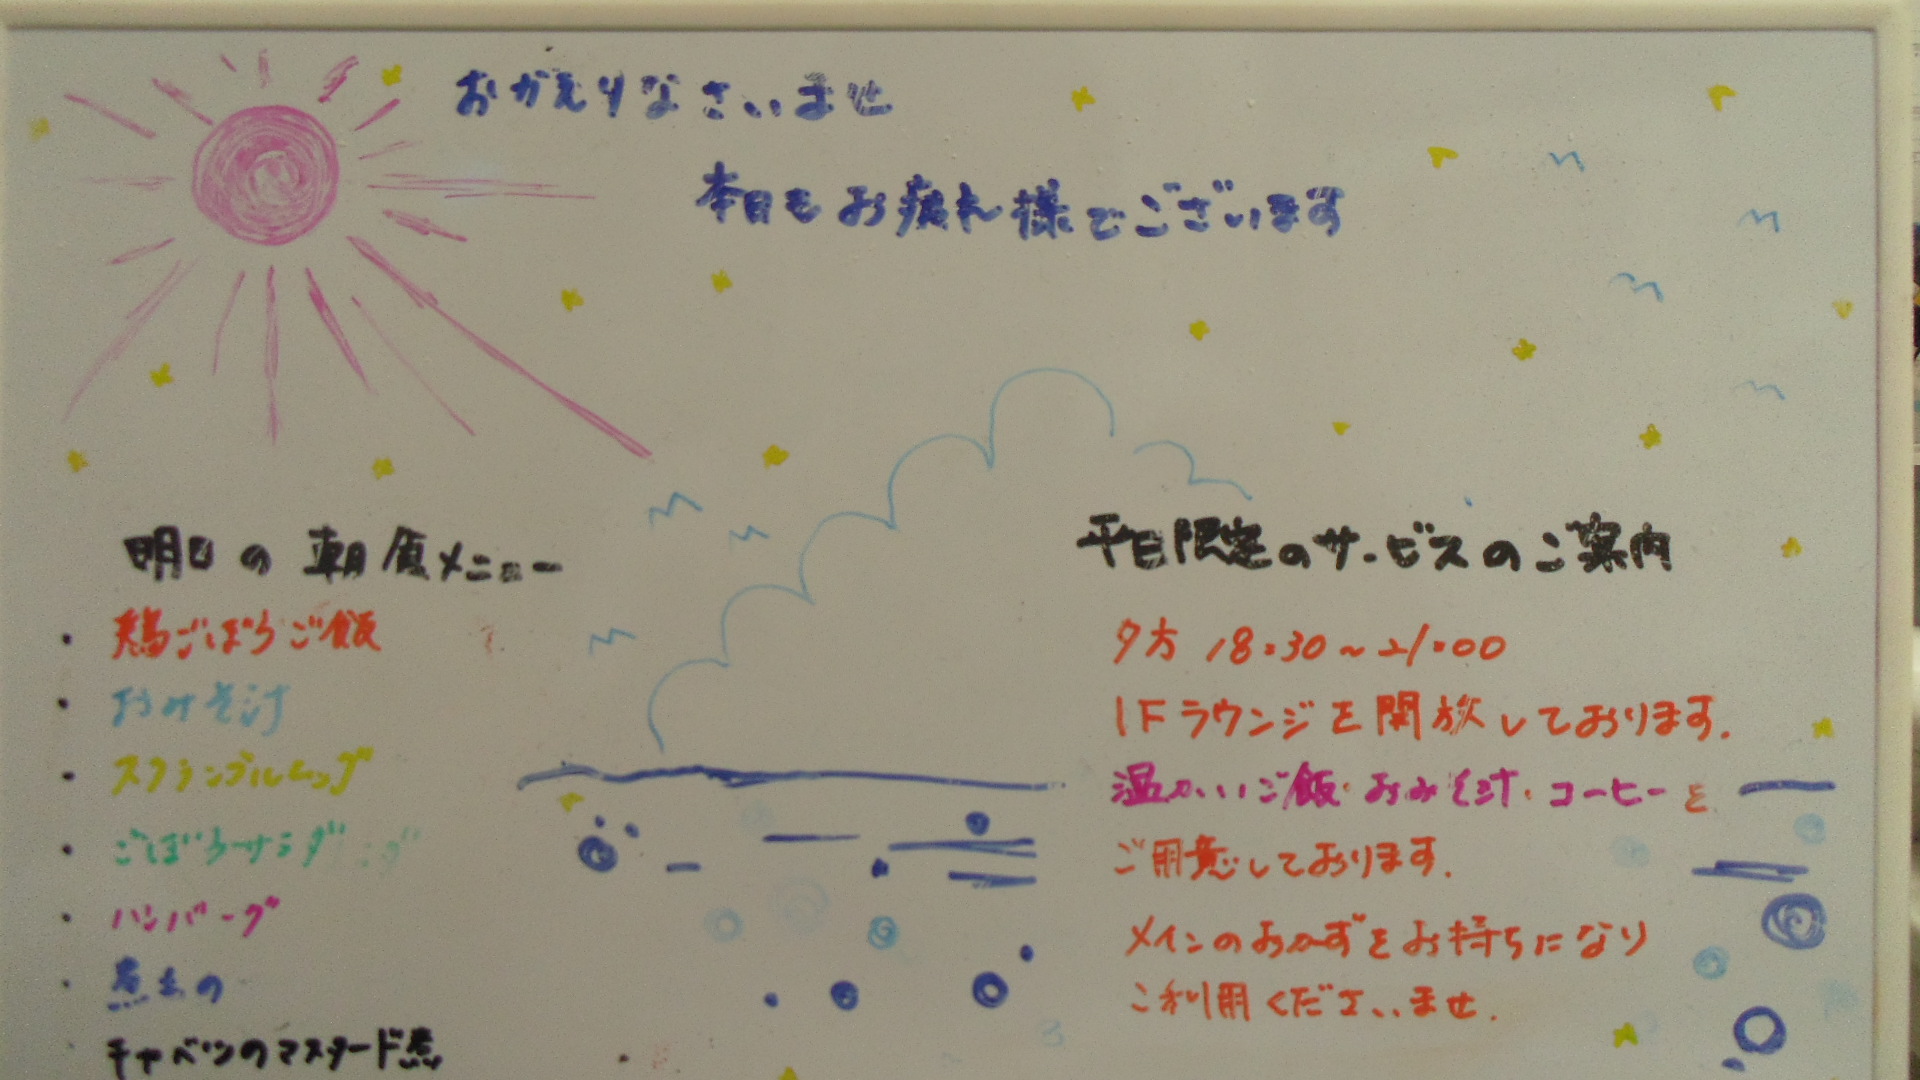 おかえりなさいませ
本日もお疲れ様でございます
明日の朝食メニュー
・鶏ごぼうご飯
・おみそ汁
・スクランブルエッグ
・ごぼうサラダ
・ハンバーグ
・煮もの
キャベツのマスタード煮
平日限定のサービスのご案内
夕方 18:30~21:00
1Fラウンジを開放しております.
温かいご飯・おみそ汁・コーヒーを
ご用意しております.
メインのおかずをお持ちになり
ご利用くださいませ.